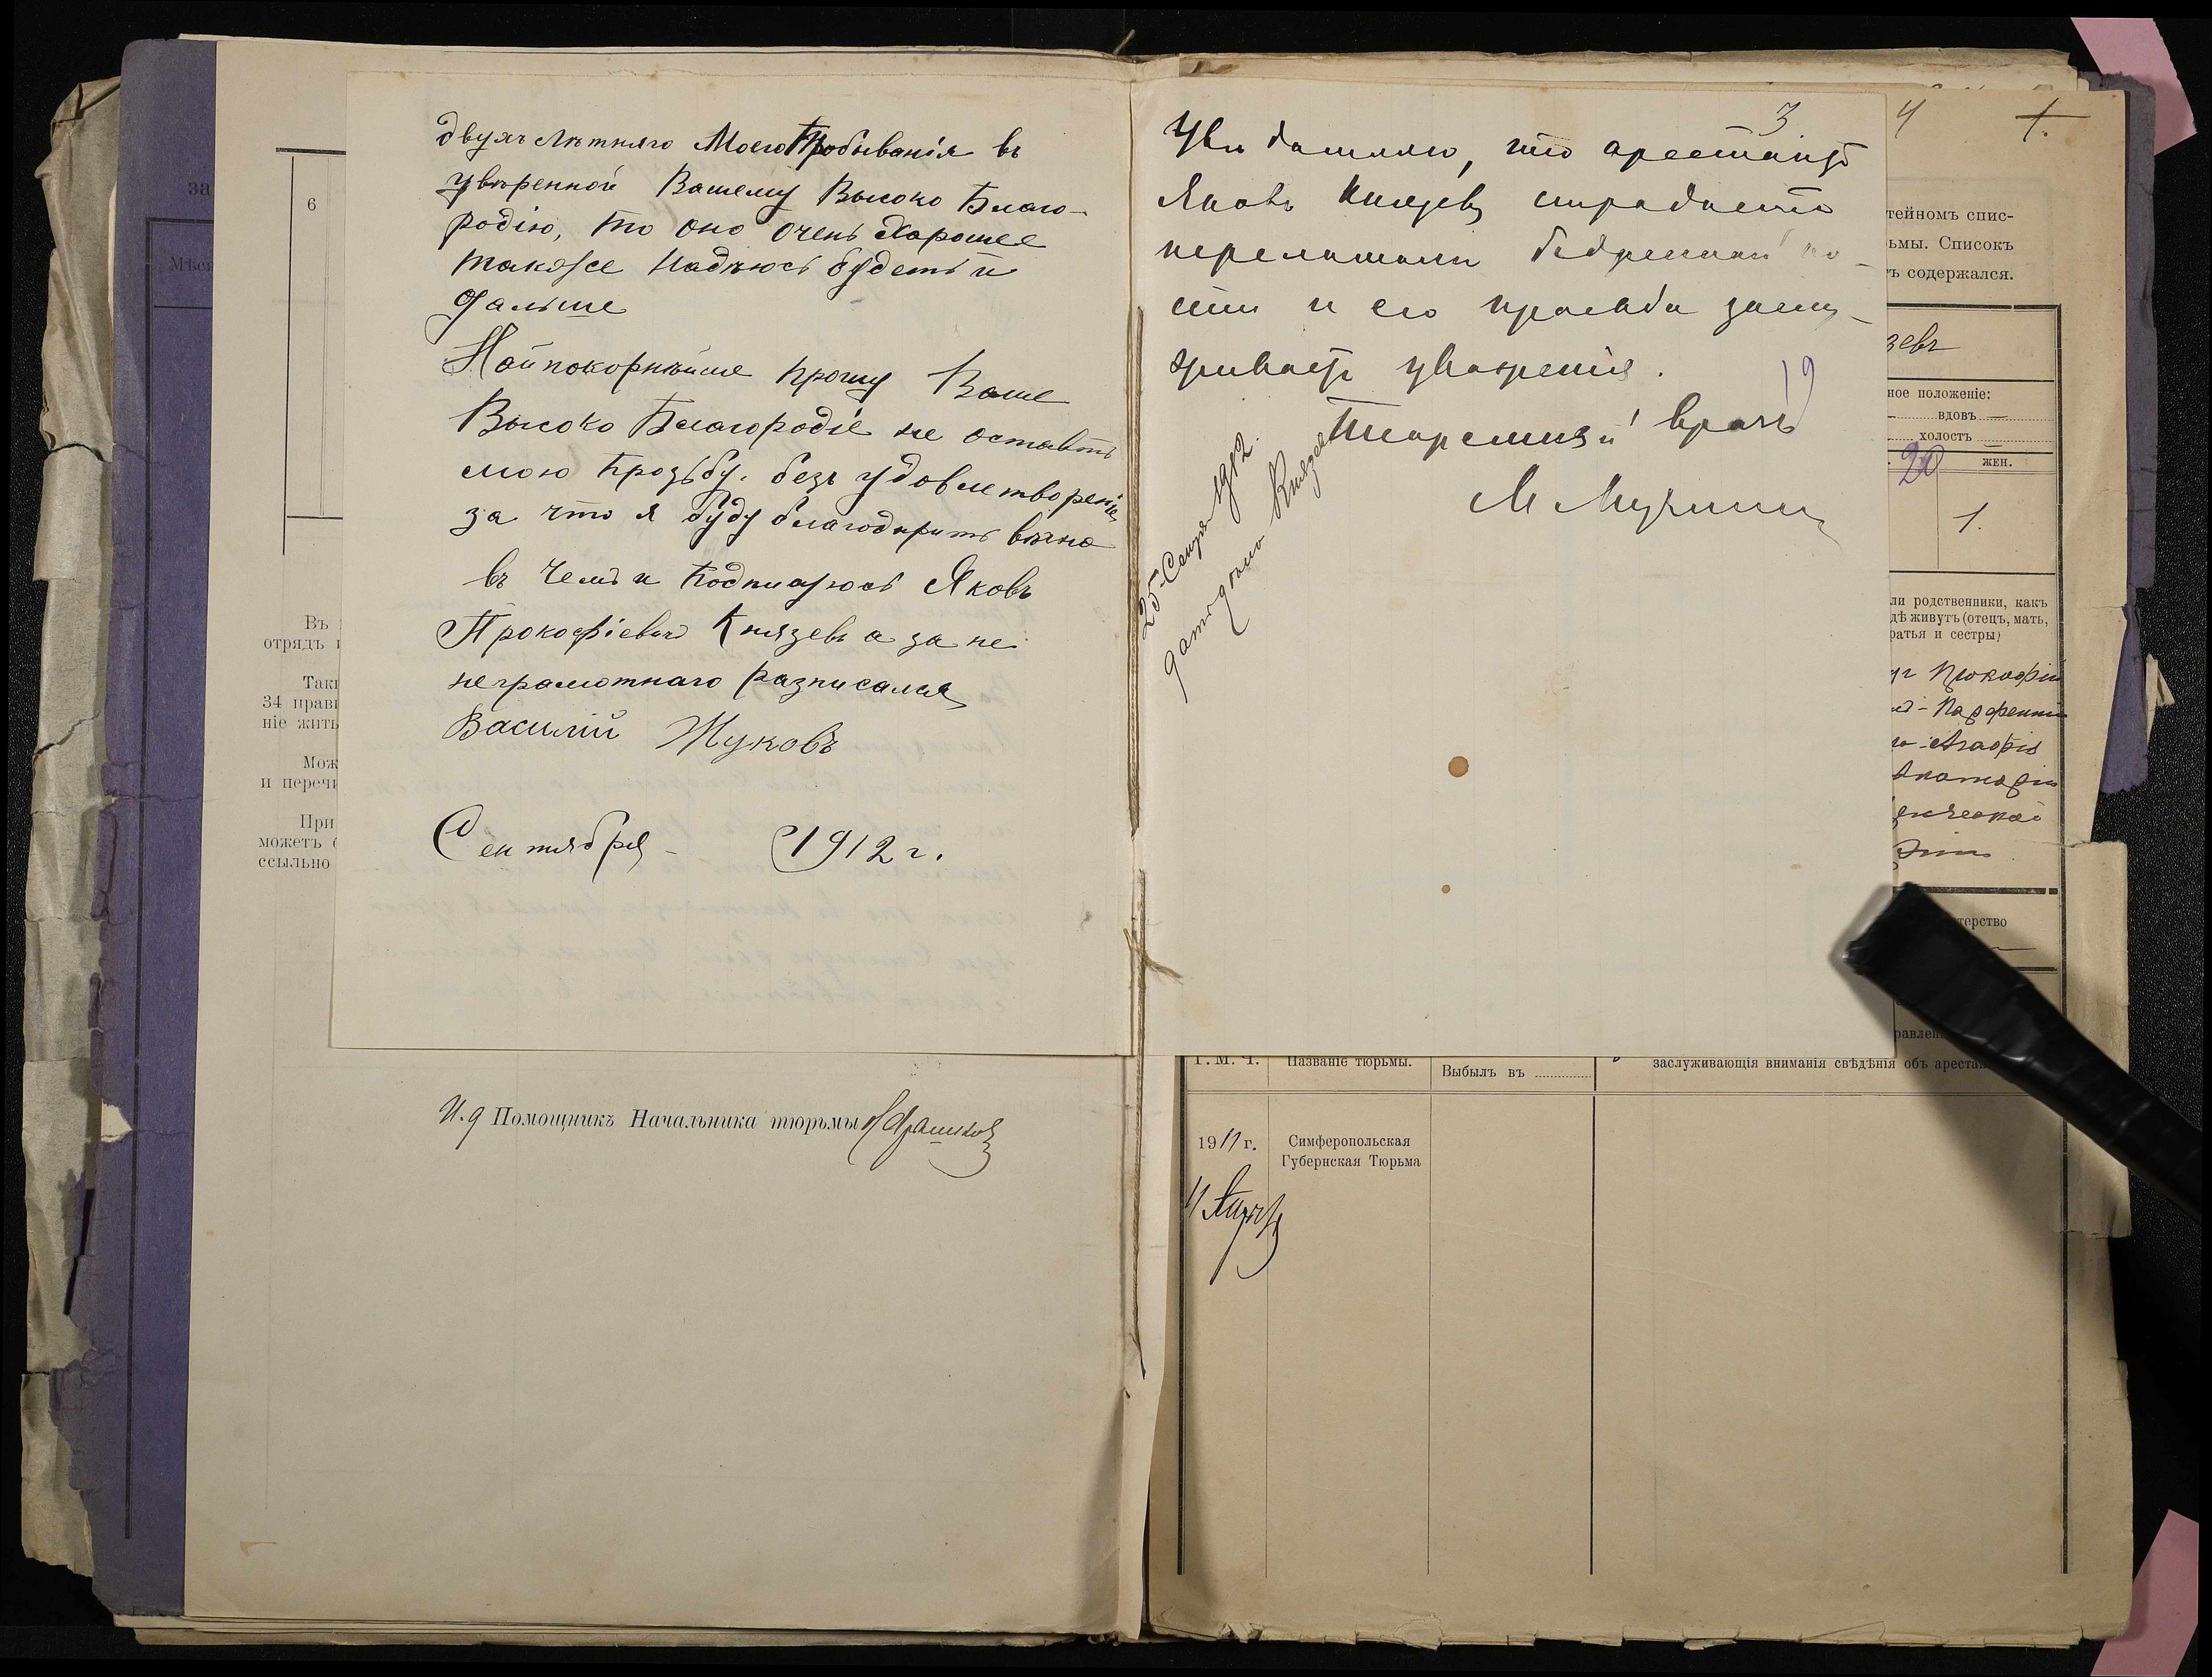 6
двухъ лѣтняго Моего Пробыванія въ
увѣренной Вашему Высоко Благо-
родію, то оно очень Харошее
также Надѣюсь будетъ и
Дальше
Найпокорнѣйше прошу Ваше
Высоко Благородіе не оставть
мою прозьбу. безъ удовлетворенія
за что я буду благодарить вѣчно
въ чемъ и Подписуюсь Яковъ
Прокофіевичъ Князевъ а за не
неграмотнаго разписался
Василій Жуковъ
Сентября - 1912 г.
И.д Помощникъ Начальника тюрьмы
за
Мѣся
Въ
отрядъ
Такі
34 прави
ніе жить
Мож
и перечи
При
можетъ
ссыльно
3
что арестантъ
Яковъ Князевъ страдаетъ
переломом бедренной ко-
сти и его просьба заслу-
живаетъ уваженія.
19
Тюремный врачъ
25 Сентря 1912
Князев
4
1.
тейномъ спис-
ьмы. Списокъ
ъ содержался.
зевъ
ное положеніе:
вдовъ —
холостъ —
20
жен.
1.
ли родственники, какъ
дѣ живутъ (отецъ, мать,
ратья и сестры)
Прокофій
терство
равлен
Г. М. Ч.
Названіе тюрьмы.
Выбылъ въ
заслуживающія вниманія свѣдѣнія объ арестан
1911 г.
Симферопольская
Губернская Тюрьма
11